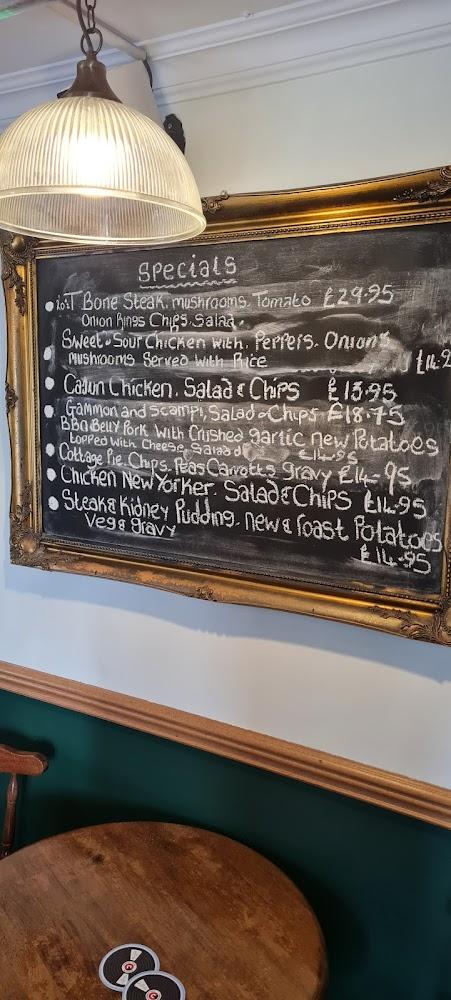 Specials
T Bone Steak. mushrooms. Tomato £29.95
Onion Rings Chips. Salad.
Sweet & Sour Chicken with. Peppers. Onions
mushrooms Served with Rice
Cajun Chicken. Salad & Chips £13.95
Gammon and Scampi, Salad & Chips £18.75
BBQ Belly Pork with Crushed garlic new Potatoes
topped with Cheese Salad £14.95
Cottage Pie. Chips. Peas Carrotts gravy £14-95
Chicken New Yorker. Salad & Chips £14.95
Steak & Kidney Pudding. new & roast Potatoes
Veg & gravy
£14.95